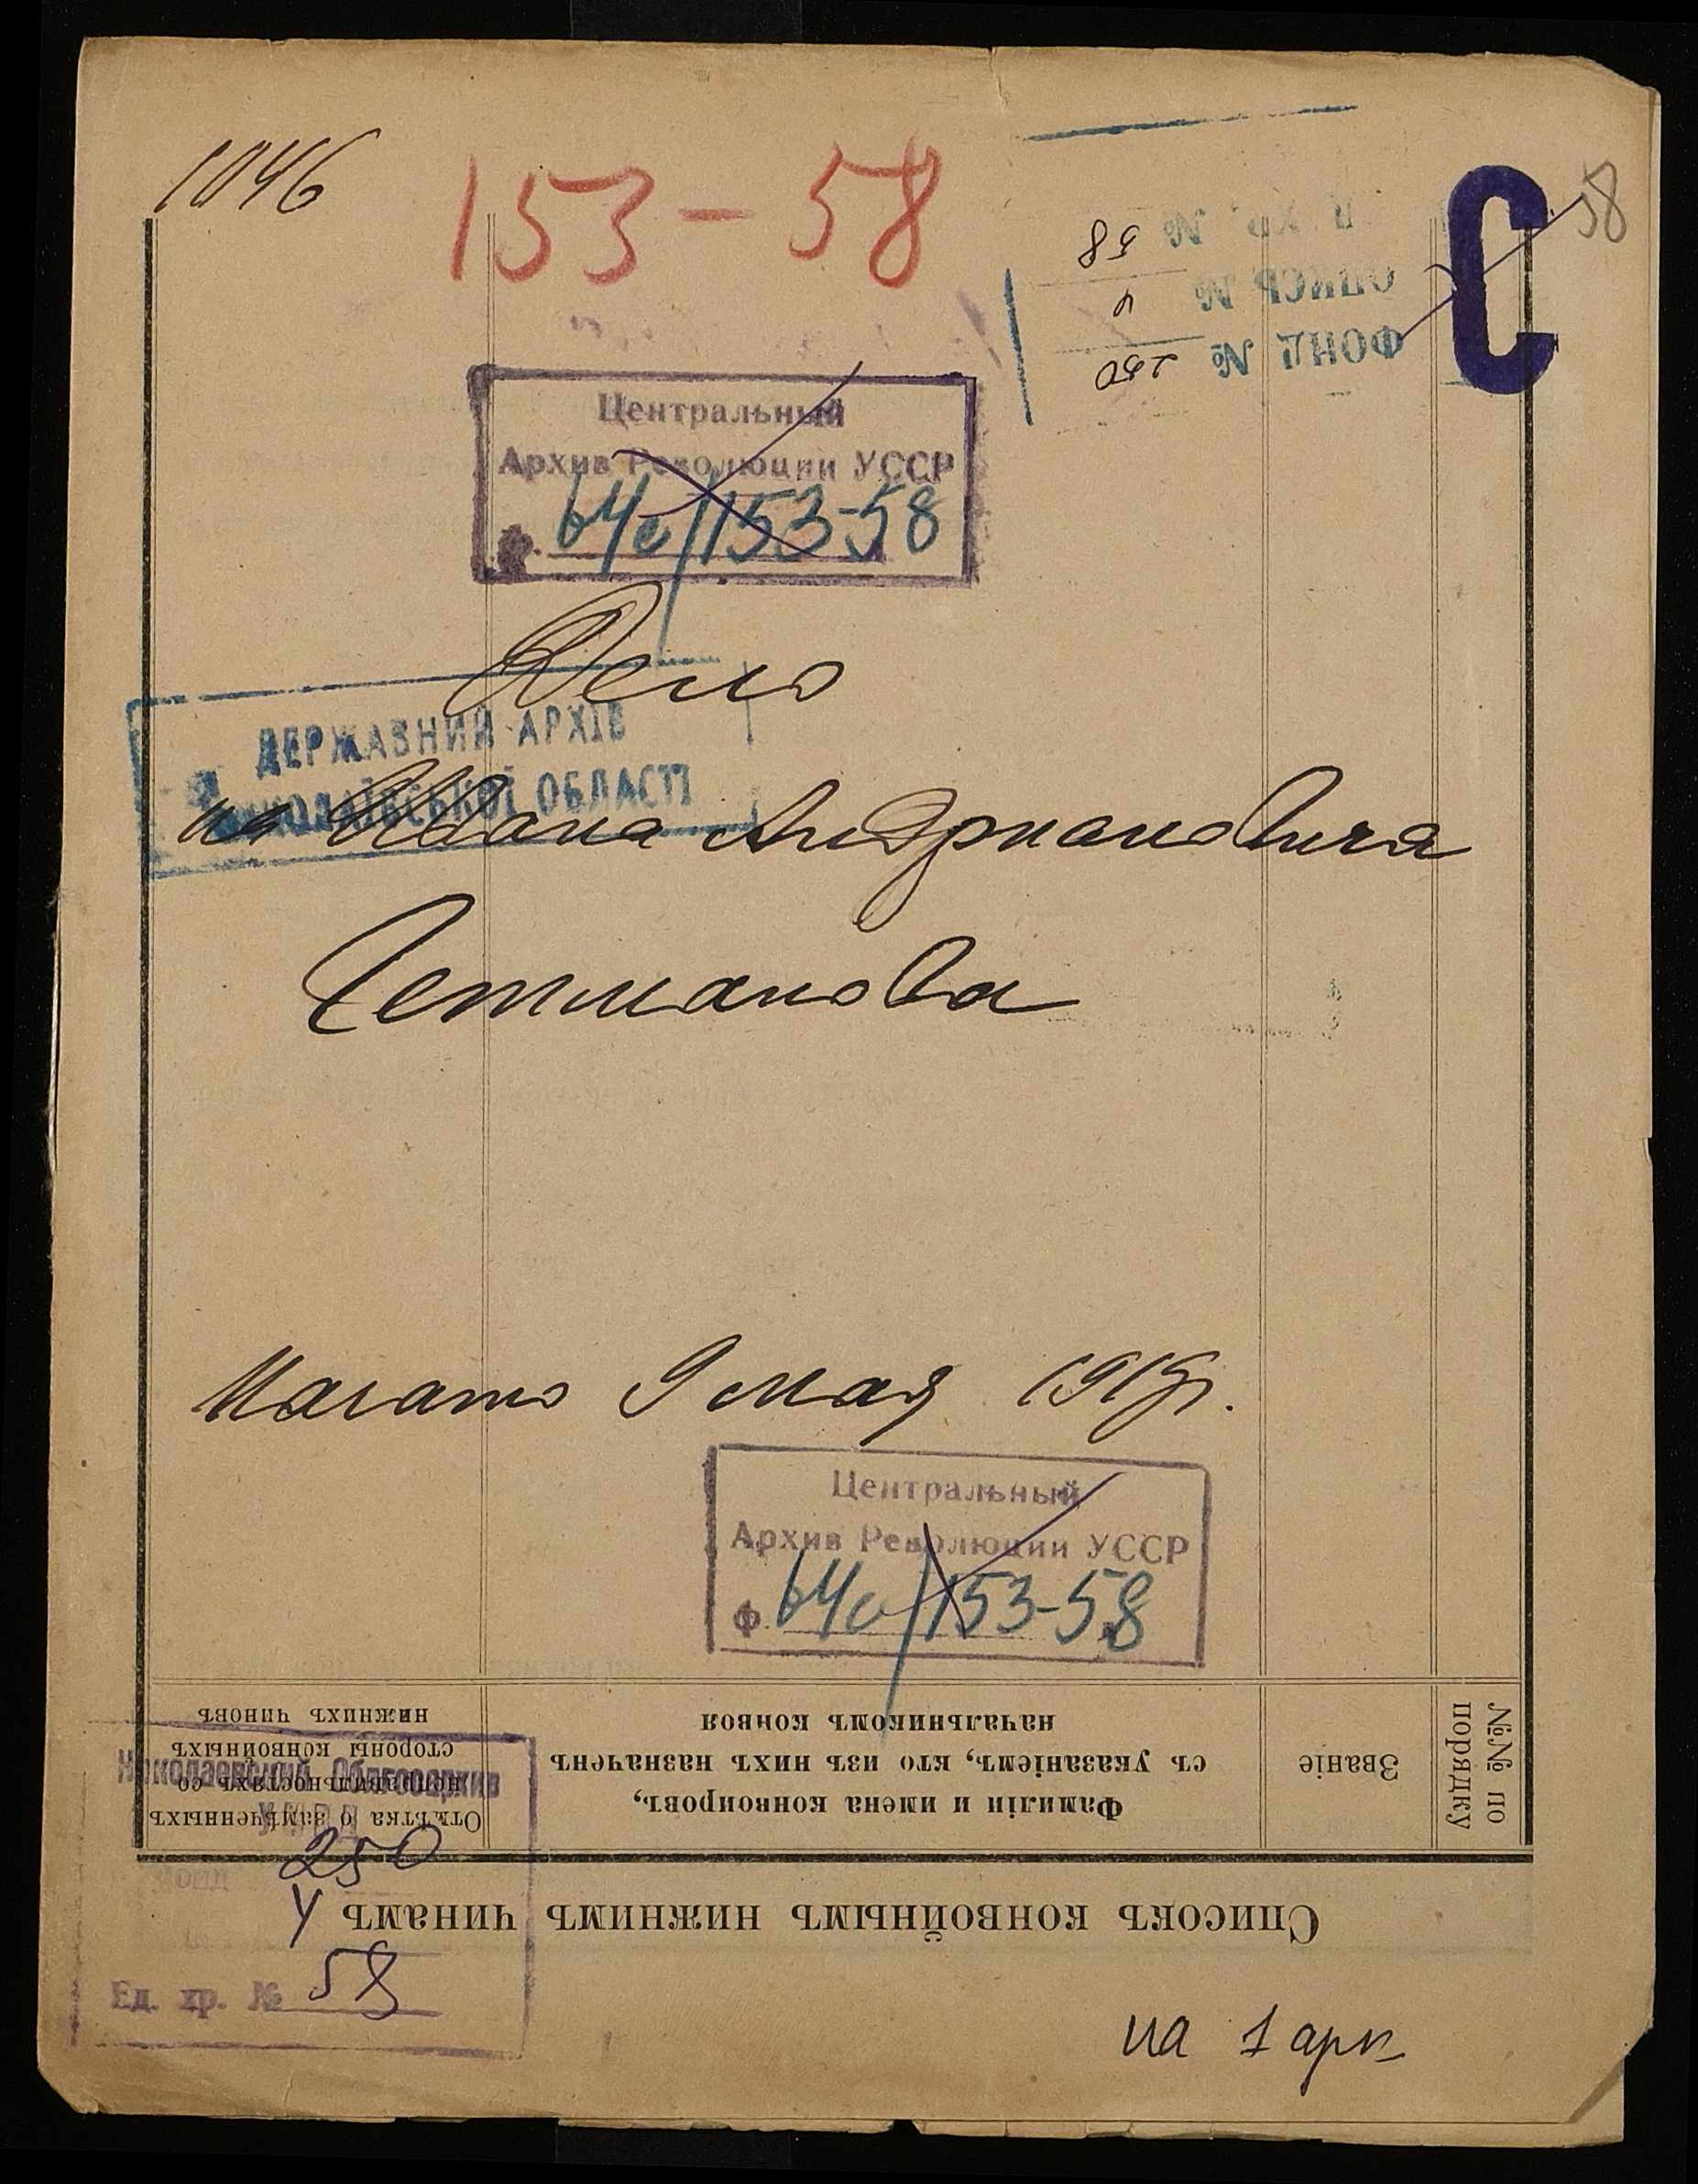 1046
153-58
58
С
ФОНД № 250
ОПИСЬ № 4
№ 58
Центральный
Архив Революции УССР
64с/153-58
Дело
ДЕРЖАВНИЙ АРХІВ
МИКОЛАЇВСЬКОЇ ОБЛАСТІ
на Ивана Андриановича
Гетманова
Начато 9 мая 1919г.
Центральный
Архив Революции УССР
Ф. 64с/153-58
Списокъ конвойнымъ нижнимъ чинамъ
№№ по порядку
Званіе
Фамиліи и имена конвоировъ,
съ указаніемъ, кто изъ нихъ назначенъ
начальникомъ конвоя
Отмѣтка о замѣченныхъ
неправильностяхъ со
стороны конвойныхъ
нижнихъ чиновъ
Николаевский Облгосархив
250
4
Ед. хр. № 58
на 1 арк